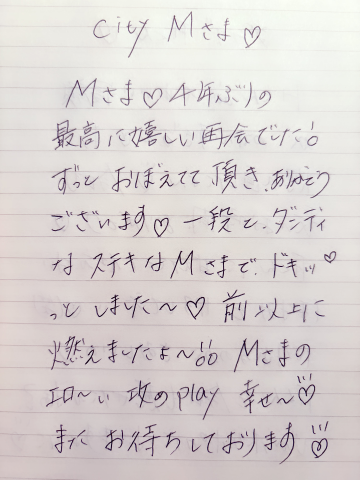 city Mさま♡
Mさま♡4年ぶりの
最高に嬉しい再会でした!!
ずっと おぼえてて 頂き、ありがとう
ございます♡ 一段と、ダンディ
な ステキな Mさまで、ドキッ♡
っと しました〜♡ 前以上に
燃えましたよ〜!! Mさまの
エロ〜い 攻のplay 幸せ〜♡
また お待ちしております♡